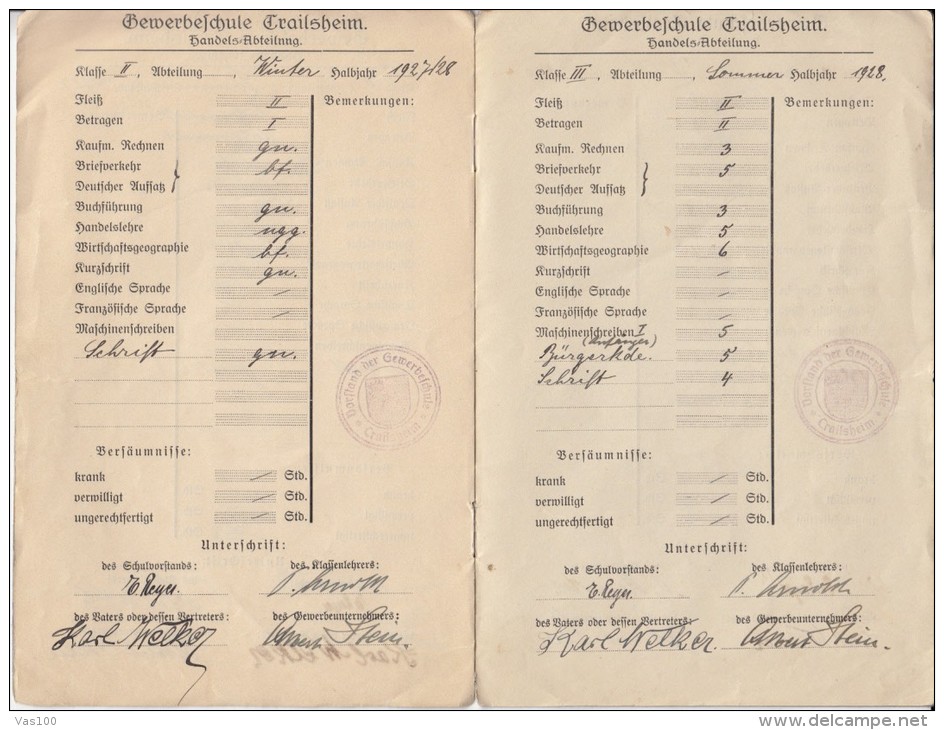 Gewerbeschule Crailsheim.
Handels-Abteilung.
Klasse II, Abteilung , Winter Halbjahr 1927/28
Fleiß II Bemerkungen:
Betragen I
Kaufm. Rechnen gu.
Briefverkehr } bf.
Deutscher Aufsatz
Buchführung gu.
Handelslehre ngg.
Wirtschaftsgeographie bf.
Kurzschrift gu.
Englische Sprache /
Französische Sprache /
Maschinenschreiben
Schrift gu.
Vorstand der Gewerbeschule
* Crailsheim *
Versäumnisse:
krank / Std.
verwilligt / Std.
ungerechtfertigt / Std.
Unterschrift:
des Schulvorstands: des Klassenlehrers:
Arnold
des Vaters oder dessen Vertreters: des Gewerbeunternehmers:
Karl Welker Albert Stein.
Karl Welker
Gewerbeschule Crailsheim.
Handels-Abteilung.
Klasse III, Abteilung , Sommer Halbjahr 1928.
Fleiß II Bemerkungen:
Betragen II
Kaufm. Rechnen 3
Briefverkehr } 5
Deutscher Aufsatz
Buchführung 3
Handelslehre 5
Wirtschaftsgeographie 6
Kurzschrift /
Englische Sprache /
Französische Sprache /
Maschinenschreiben I 5
(Anfänger)
Bürgerkde. 5
Schrift 4
Vorstand der Gewerbeschule
* Crailsheim *
Versäumnisse:
krank / Std.
verwilligt / Std.
ungerechtfertigt / Std.
Unterschrift:
des Schulvorstands: des Klassenlehrers:
Arnold
des Vaters oder dessen Vertreters: des Gewerbeunternehmers:
Karl Welker. Albert Stein.
Vas100
delcampe.net